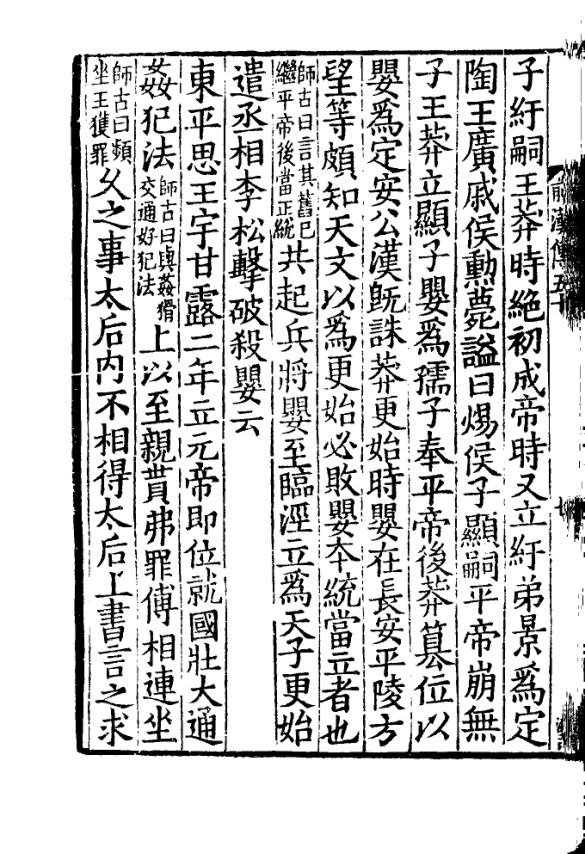 子紆嗣王莽時絶初成帝時又立紆弟景爲定
陶王廣戚侯勲薨謚曰煬侯子顯嗣平帝崩無
子王莽立顯子嬰爲孺子奉平帝後莽簒位以
嬰爲定安公漢旣誅莽更始時嬰在長安平陵方
望等頗知天文以爲更始必敗嬰本統當立者也
師古曰言其舊已
繼平帝後當正統
共起兵將嬰至臨涇立爲天子更始
遣丞相李松擊破殺嬰云
東平思王宇甘露二年立元帝即位就國壯大通
姦犯法
師古曰與姦猾
交通好犯法
上以至親貰弗罪傅相連坐
師古曰頻
坐王獲罪
乆之事太后内不相得太后上書言之求
前漢傳五十